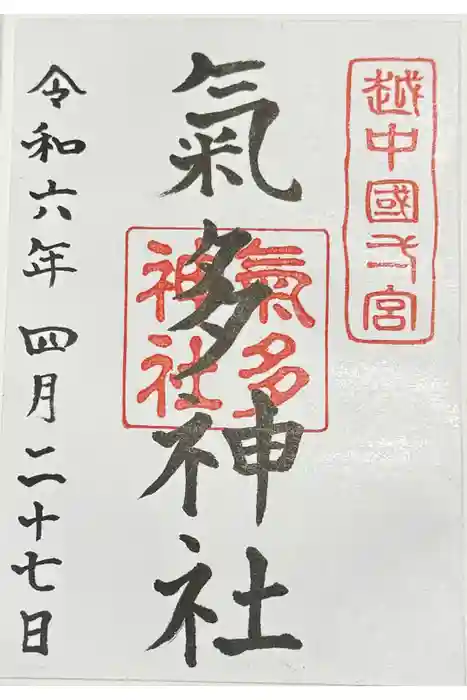 越中國一宮
氣多神社
氣多
神社
令和六年四月二十七日